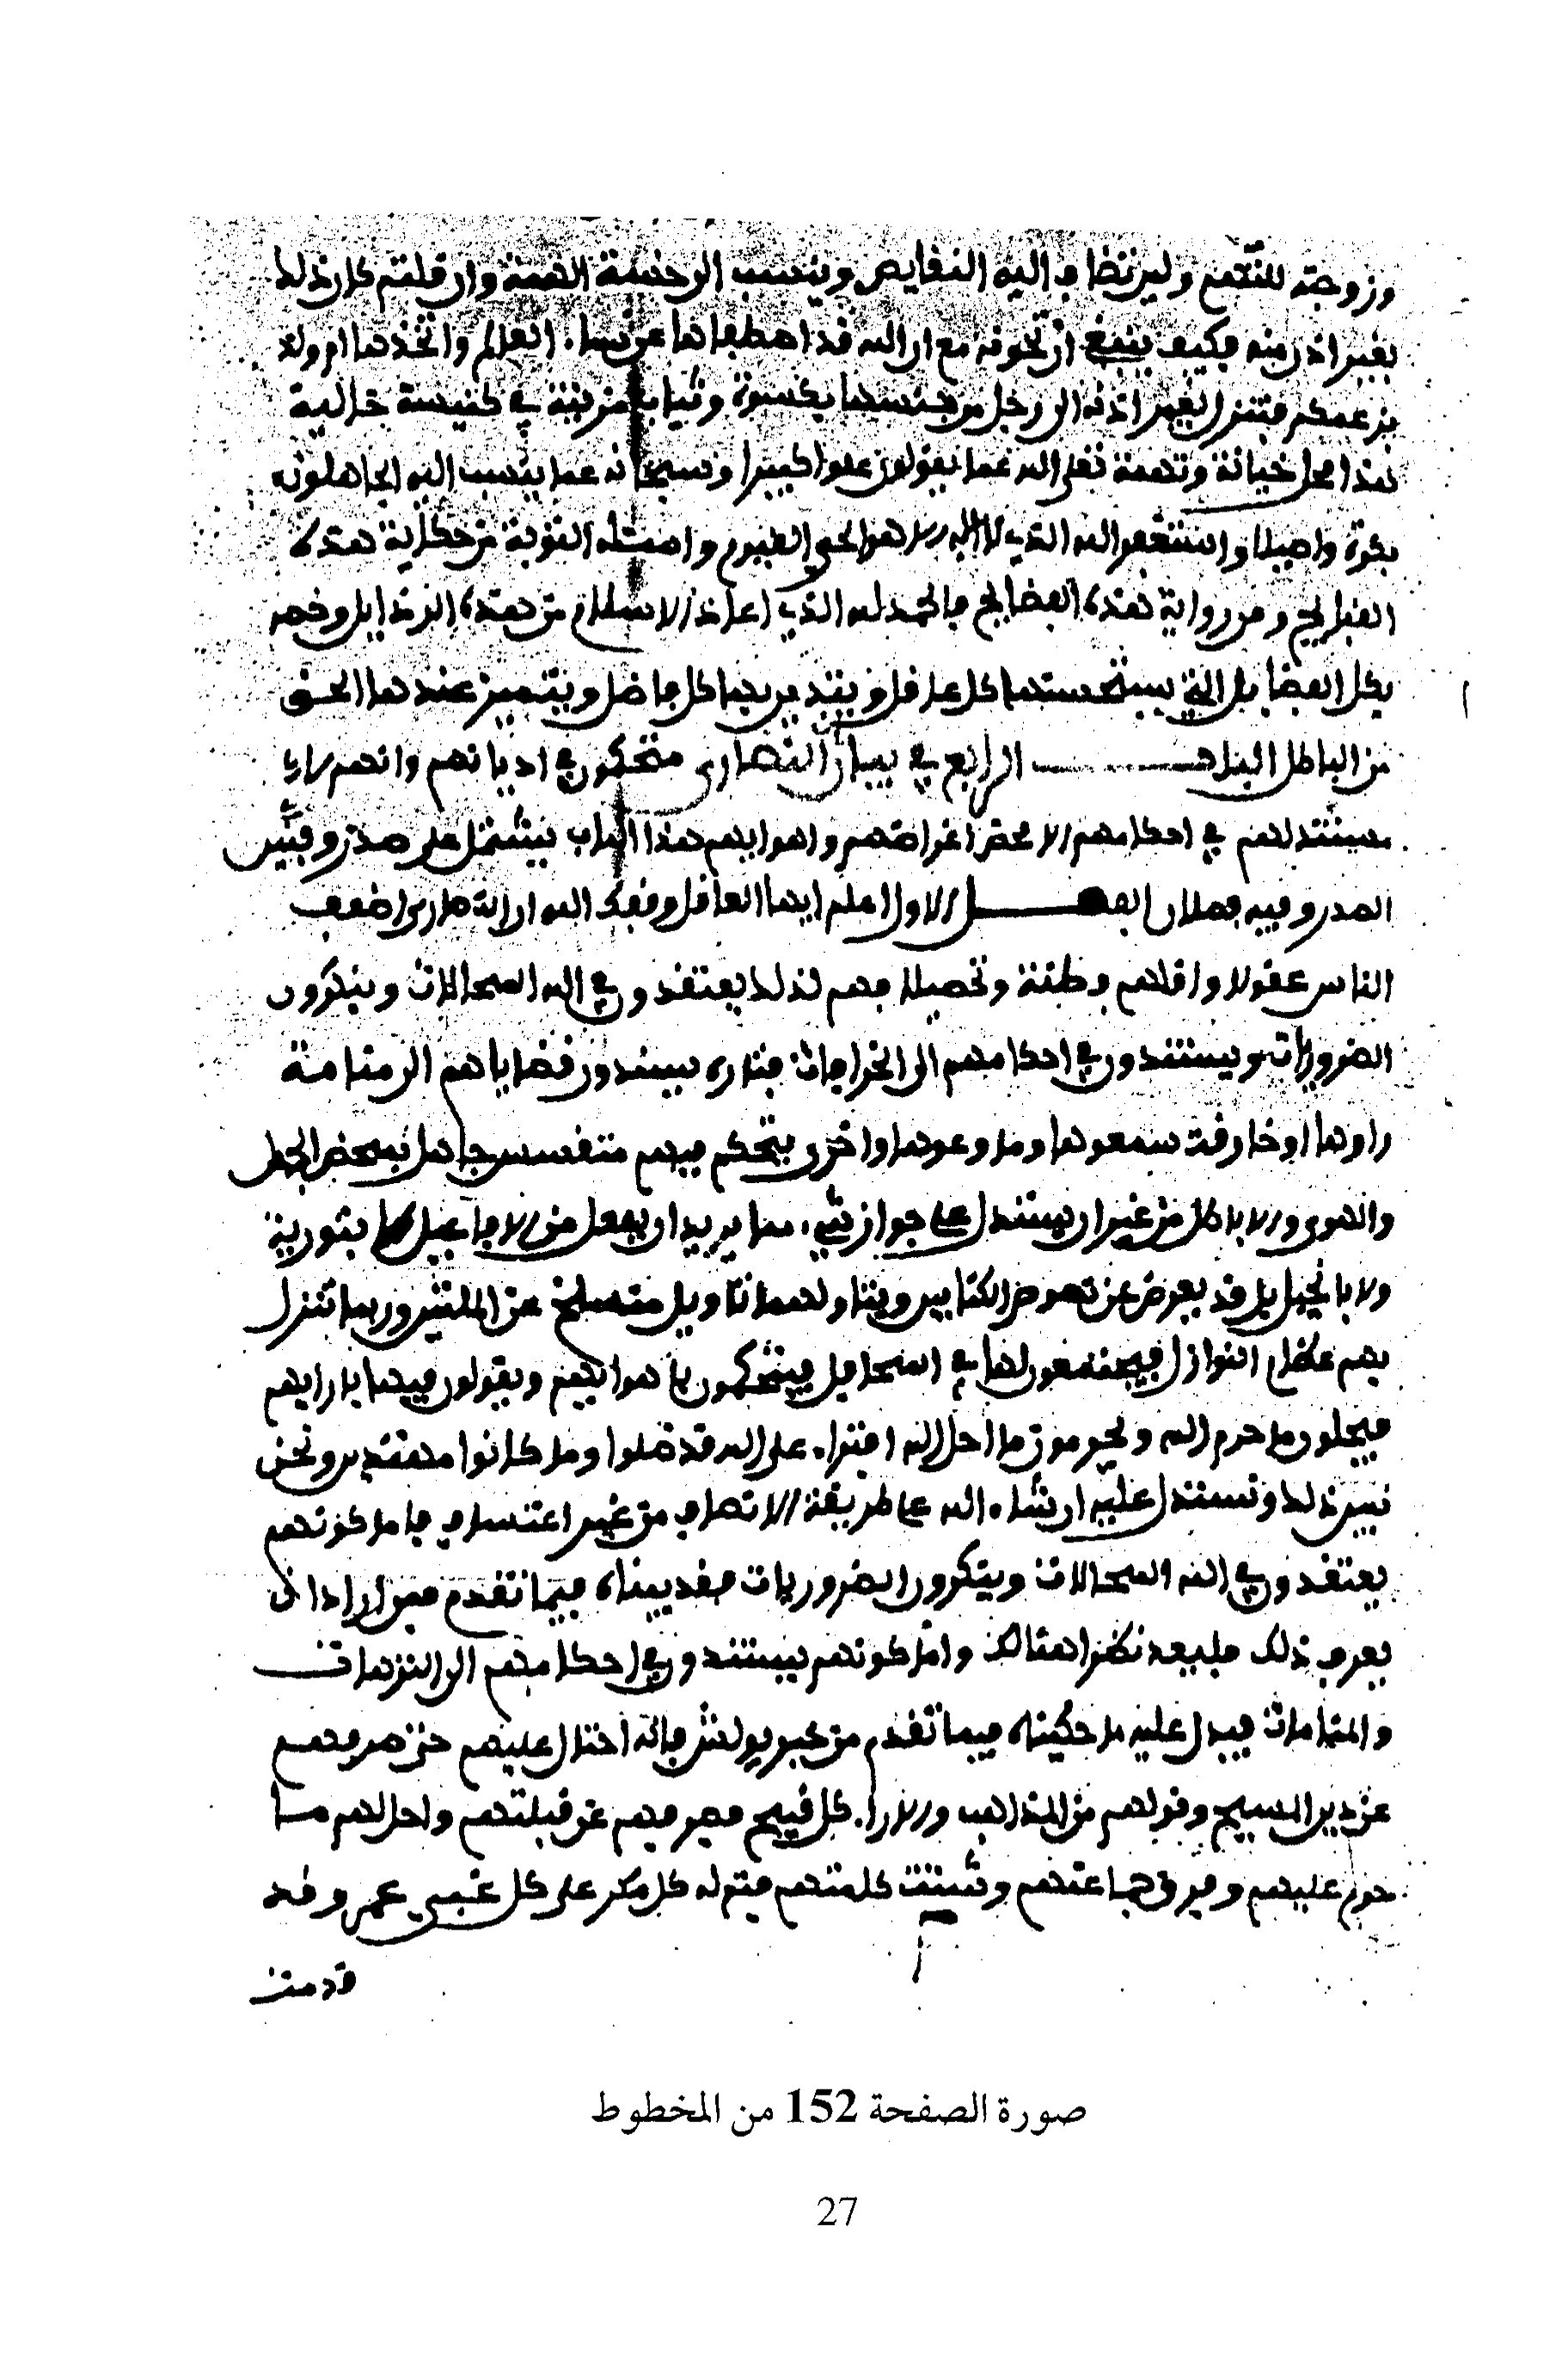 وزوجة للنقم ولمن تضاف اليه النقايص وينسب الى خسة الهمة وان قلتم كان ذلك
بغير اذن منه فكيف ينبغي ان تخونه مع ان الله قد اصطفاها على نساء العالم واتخذها ام ولد
بزعمكم فتنزل بغير اذنه الى رجل من جنسها بكسوة وثياب مزينة في كنيسة خالية
هذا محل خيانة وتهمة تعلى الله عما يقولون علوا كبيرا وسبحانه عما ينسب اليه الجاهلون
بكرة واصيلا واستغفر الله الذي لا اله الا هو الحي القيوم واسئله التوبة من حكاية هذه
القبايح ومن رواية هذه الفضايح فالحمد لله الذي اعاذ الاسلام من هذه الرذايل وخصه
بكل الفضايل التي يستحسنها كل عاقل ويتدين بها كل فاضل ويتميز عندها الحق
من الباطل البـاب الرابع في بيان ان النصارى متحكمون في اديانهم وانهم لا
مستند لهم في احكامهم الا محض اغراضهم واهوايهم هذا الباب يشتمل على صدر وفنين
الصدر وفيه فصلان الفصل الاول اعلم ايها العاقل وفقك الله ان النصارى اضعف
الناس عقولا واقلهم فطنة وتحصيلا فهم لذلك يعتقدون في الله المحالات وينكرون
الضروريات ويستندون في احكامهم الى الخرافات فتارة يسندون قضاياهم الى منامة
راوها او خارقة سمعوها وما وعوها واخرى يتحكم فيهم متقسس جاهل بمحض الجهل
والهوى والاباطل من غير ان يستدل على جواز شيء مما يريد ان يفعل من الافاعيل لا بتورية
ولا بانجيل بل قد يعرض عن نصوص الكتابين ويتاولهما تاويل منسلخ عن الملتين وربما تنزل
بهم عظام النوازل فيجتمعون لها في المحافل فيتحكمون باهوايهم ويقولون فيها بارايهم
فيحلون ما حرم الله ويحرمون ما احل الله افتراء على الله قد ضلوا وما كانوا مهتدين ونحن
نبين ذلك ونستدل عليه ان شاء الله على طريقة الانصاف من غير اعتساف فاما كونهم
يعتقدون في الله المحالات وينكرون الضروريات فقد بيناه فيما تقدم فمن اراد ان
يعرف ذلك فليعد نظرا هنالك واما كونهم يستندون في احكامهم الى النزهات
والمنامات فيدل عليه ما حكيناه فيما تقدم من خبر بولش فانه احتال عليهم حتى صرفهم
عن دين المسيح وقولهم من المذاهب والاراء كل قبيح فصرفهم عن قبلتهم واحل لهم مـا
حرم عليهم وفرق جماعتهم وشتت كلمتهم فتم له كل مكر على كل غبي غمر وقد
قدمت
صورة الصفحة 152 من المخطوط
27